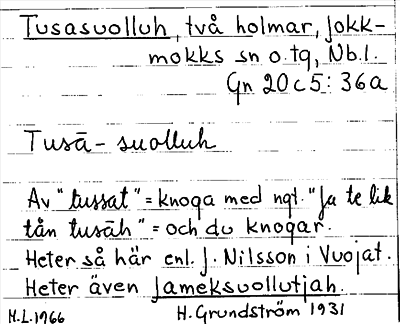 Tusasuolluh, två holmar, Jokk-
mokks sn o. tg, Nb.l.
Gn 20 c 5: 36a
Tusā-suolluh
Av "tussat" = knoga med ngt. "Ja te lik
tån tusāh" = och du knogar.
Heter så här enl. J. Nilsson i Vuojat.
Heter även Jameksuollutjah.
H.L. 1966 H. Grundström 1931